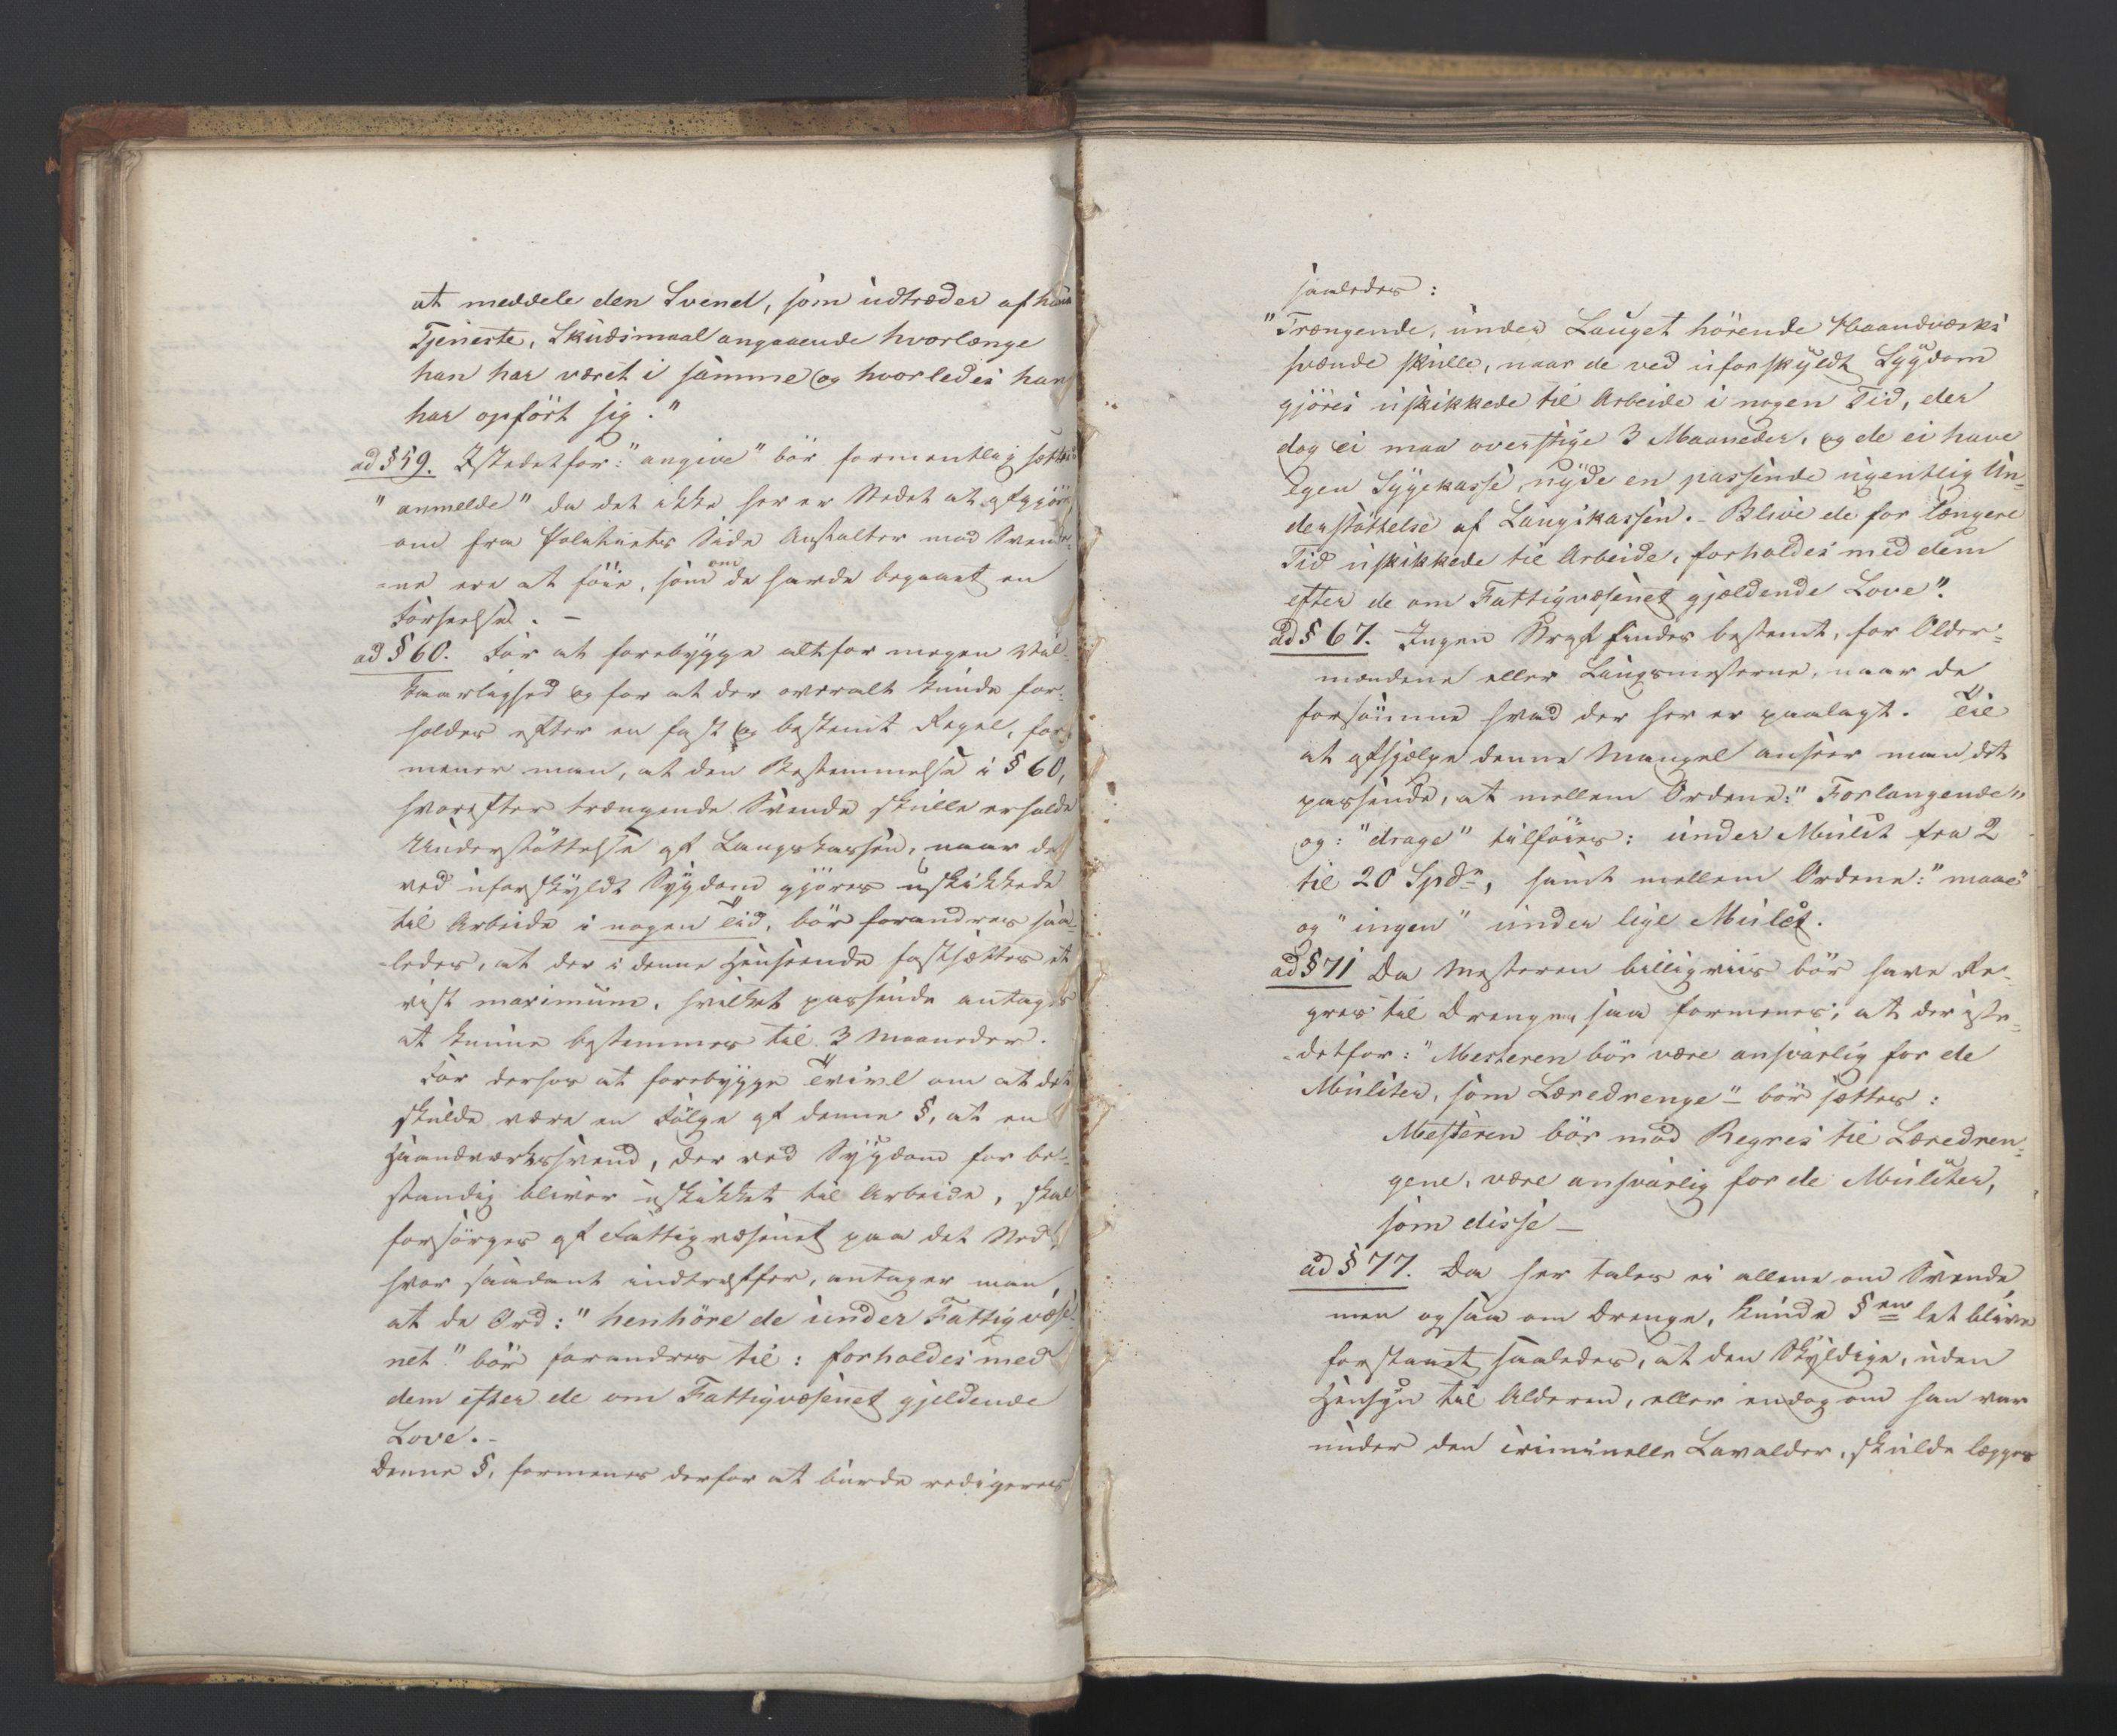 at meddele den Svend, som udtræder af hans
Tjeneste, Skudsmaal angaaende hvorlænge
han har været i samme og hvorledes han
har opført sig."
ad § 59. Istedetfor: "angive" bör formentlig sættes
"anmelde" da det ikke her er Stedet at afgjöre
om fra Politiets Side Anstalter mod Svende-
=ne ere at föie, som om de havde begaaet en
Forseelse. –
ad § 60. For at forebygge altfor megen Vil-
kaarlighed og for at der overalt kunde for-
holdes efter en fast og bestemt Regel, for-
mener man, at den Bestemmelse i § 60,
hvorefter trængende Svende skulle erholde
Understöttelse af Laugskassen, naar de
ved uforskyldt Sygdom gjöres uskikkede
til Arbeide i nogen Tid, bör forandres saa-
ledes, at der i denne Henseende fastsættes et
vist maximum, hvilket passende antages
at kunne bestemmes til 3 Maaneder.
For derhos at forebygge Tvivl om at det
skulde være en Fölge af denne §, at en
Haandværkssvend, der ved Sygdom for be-
standig bliver uskikket til Arbeide, skal
forsörges af Fattigvæsenet paa det Sted,
hvor saadant indtræffer, antager man,
at de Ord: "henhöre de under Fattigvæse-
net" bör forandres til: forholdes med
dem efter de om Fattigvæsenet gjeldende
Love.–
Denne §, formenes derfor at burde redigeres
saaledes:
"Trængende, under Lauget hörende Haandværks
svende skulle, naar de ved uforskyldt Sygdom
gjöres uskikkede til Arbeide i nogen Tid, der
dog ei maa overstige 3 Maaneder, og de ei have
egen Sygekasse, nyde en passende ugentlig Un-
derstöttelse af Laugskassen.– Blive de for længere
Tid uskikkede til Arbeide, forholdes med dem
efter de om Fattigvæsenet gjældende Love".
ad § 67. Ingen Straf findes bestemt, for Older-
mændene eller Laugsmesterne, naar de
forsömme hvad der her er paalagt. Til
at afhjælpe denne Mangel anseer man det
passende, at mellem Ordene: "Forlangende"
og: "drage" tilföies: under Mulct fra 2
til 20 Spdr, samt mellem Ordene: "maae"
og "ingen" under lige Mulct.
ad § 71 Da Mesteren billigviis bör have Re-
gres til Drengen, saa formenes, at der iste-
=detfor: "Mesteren bör være ansvarlig for de
Mulcter, som Læredrenge" bör sættes:
Mesteren bör mod Regres til Læredren-
gene, være ansvarlig for de Mulcter,
som disse –
ad § 77. Da her tales ei allene om Svende,
men ogsaa om Drenge, kunde §en let blive
forstaaet saaledes, at den Skyldige, uden
Hensyn til Alderen, eller endog om han var
under den criminelle Lavalder, skulde lægges